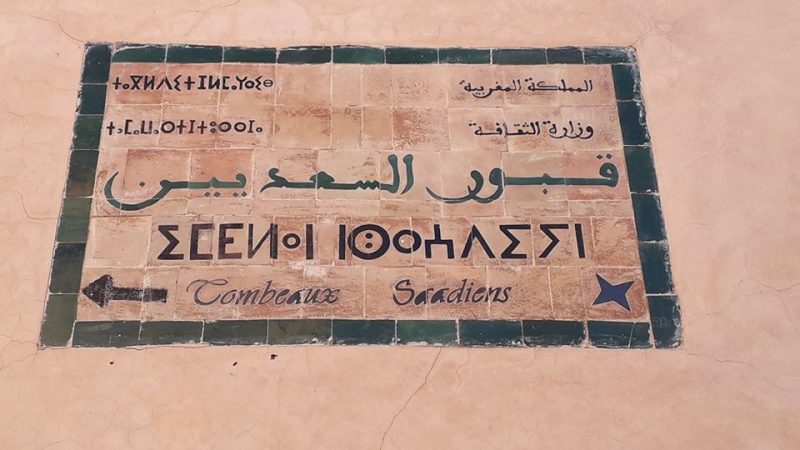 ⵜⴰⴳⵍⴷⵉⵜ ⵏ ⵍⵎⵖⵔⵉⴱ المملكة المغربية
ⵜⴰⵎⴰⵡⴰⵙⵜ ⵏ ⵜⵓⵙⵙⵏⴰ وزارة الثقافة
قبور السعديين
ⵉⵎⴹⵍⴰⵏ ⵏⵙⴰⵄⴷⵉⵢⵏ
Tombeaux Saadiens